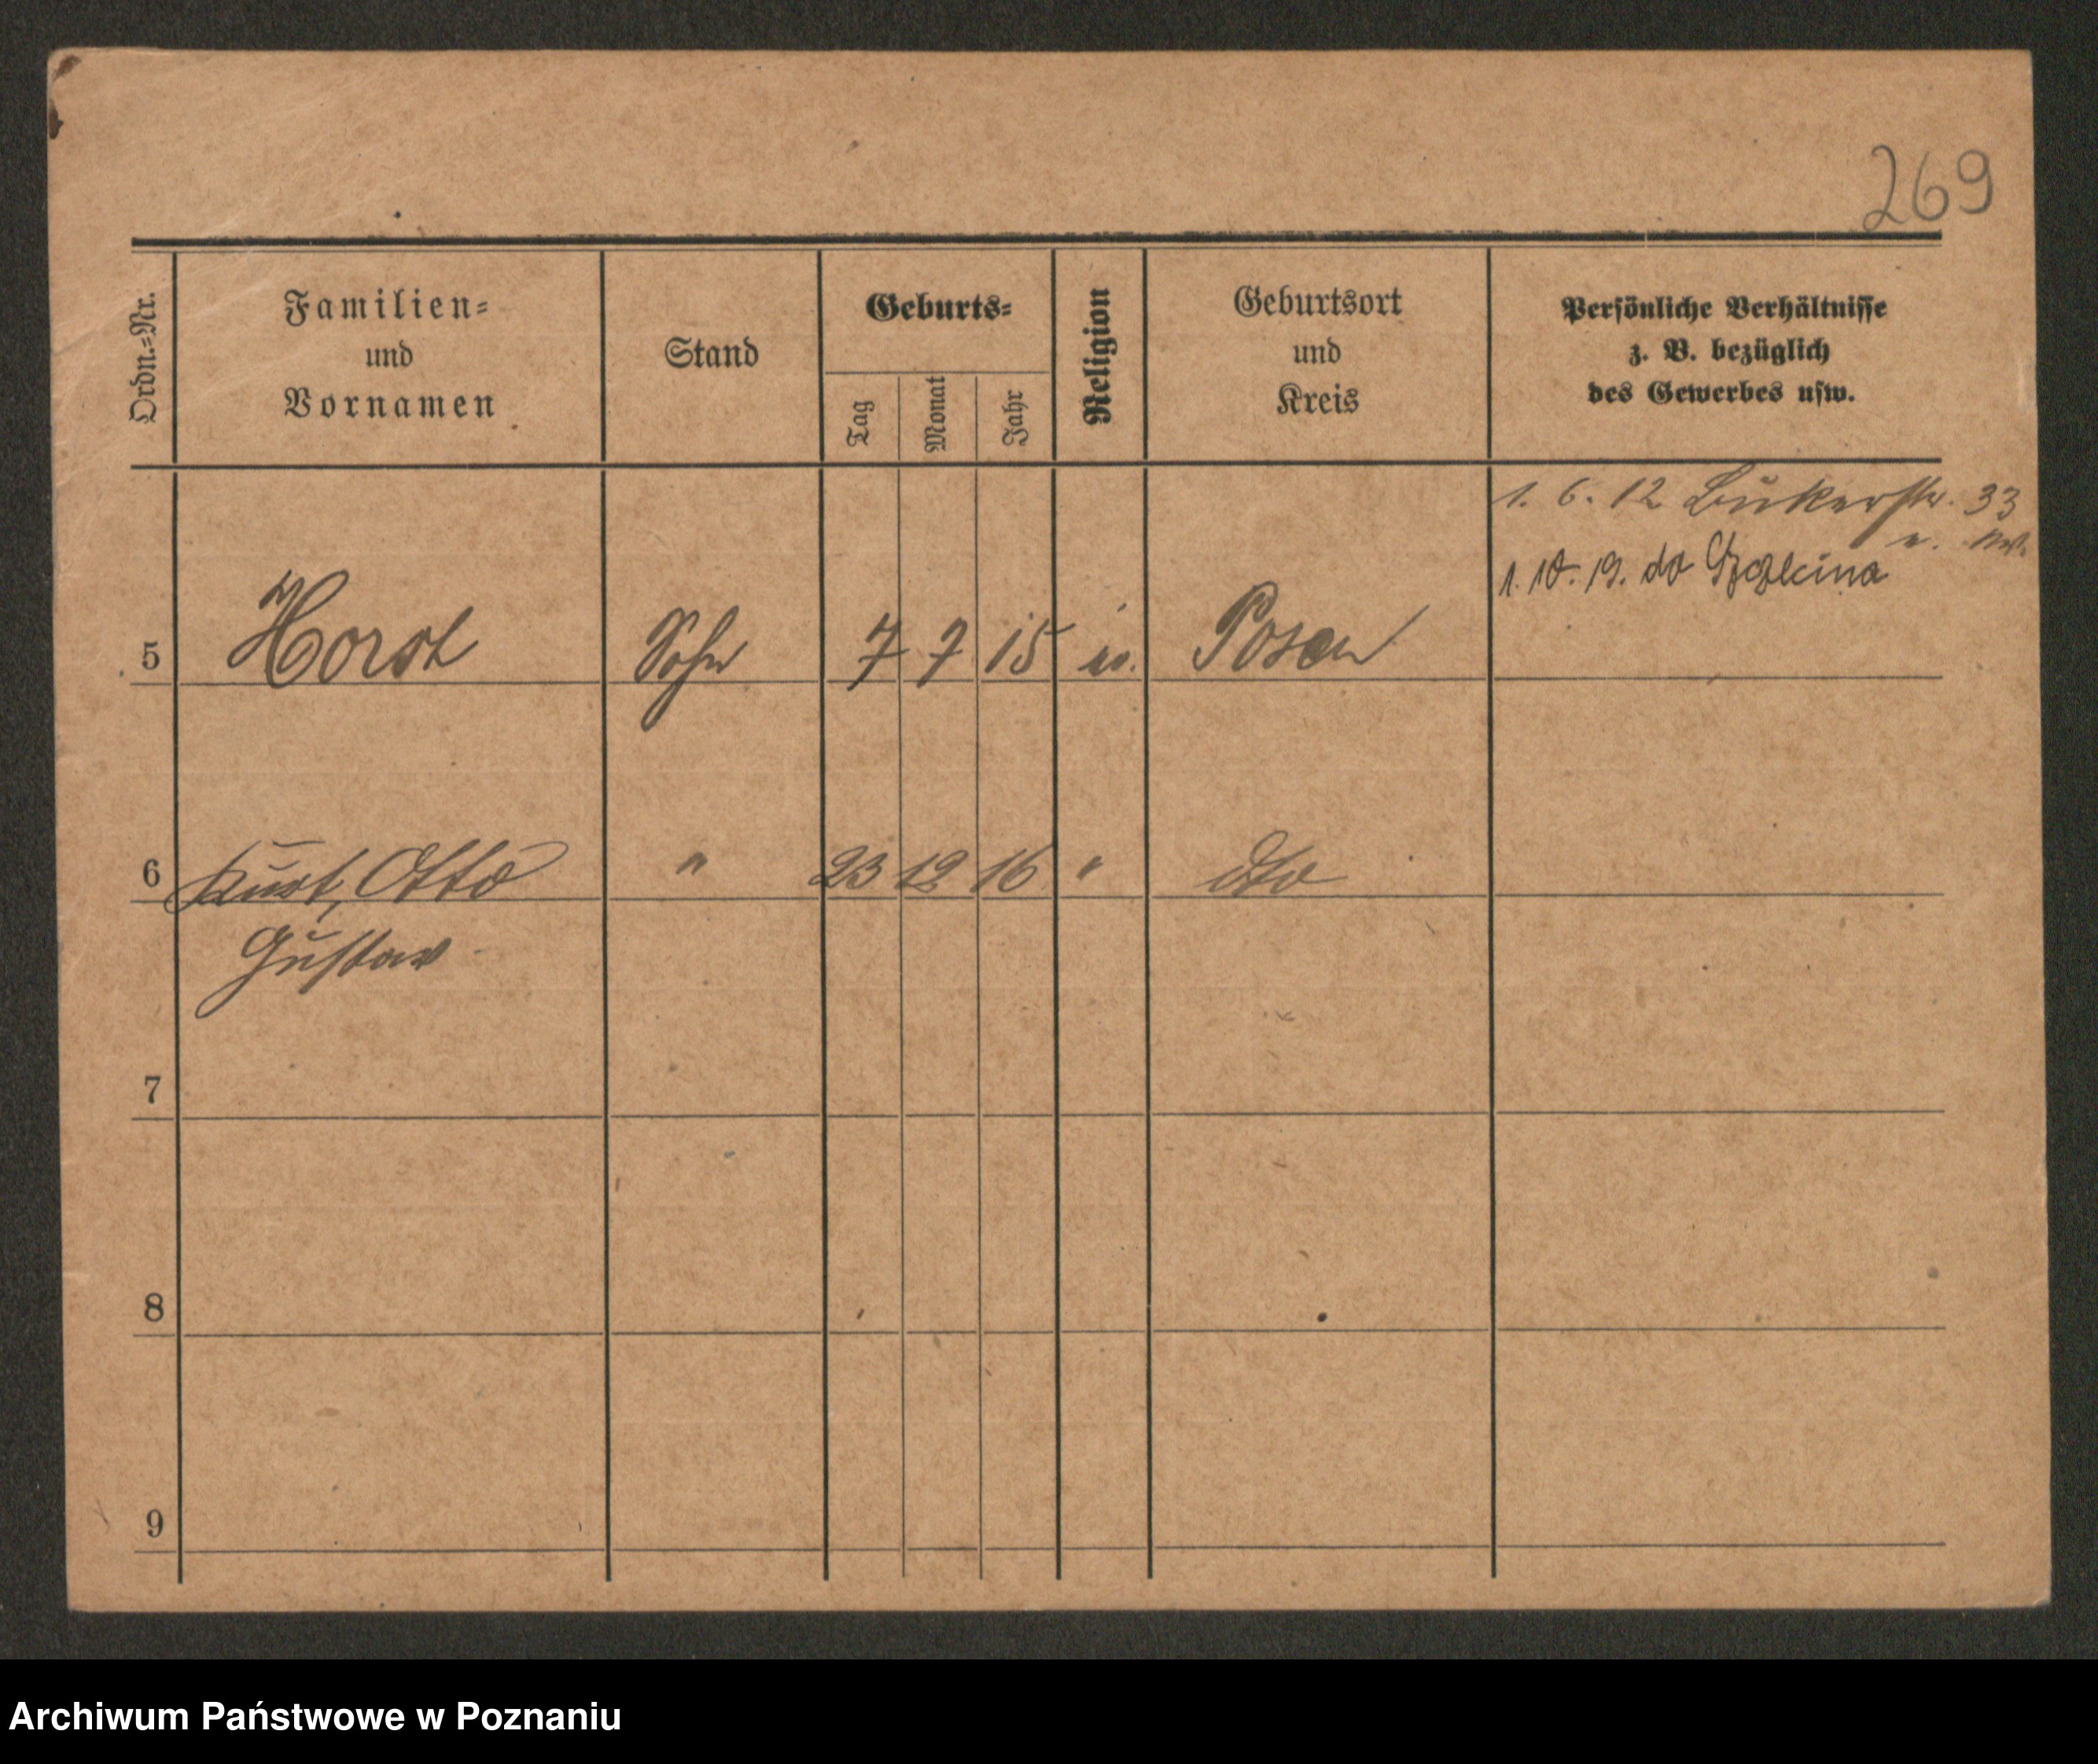 269
Ordn.-Nr.
Familien-
und
Vornamen
Stand
Geburts-
Tag
Monat
Jahr
Religion
Geburtsort
und
Kreis
Persönliche Verhältnisse
z. B. bezüglich
des Gewerbes usw.
1. 6. 12 Bukerstr. 33
1. 10. 19. do
5 Horst Sohn 7 7 15 Posen
6 Kurt, Otto " 23 12 16 " dto
Gustav
7
8
9
Archiwum Państwowe w Poznaniu